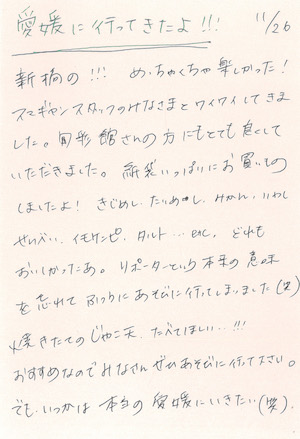 愛媛に行ってきたよ!!! 11/26
新橋の!!! めっちゃくちゃ楽しかった!
スマギャンスタッフのみなさまとワイワイしてきま
した。旬彩館さんの方にもとても良くして
いただきました。紙袋いっぱいにお買いもの
しましたよ! きじめし、たいめし、みかん、いわし
せんべい、イモケンピ、タルト…etc, どれも
おいしかったあ。リポーターという本来の意味
を忘れて ふつうにあそびに行ってしまいました(笑)
焼きたてのじゃこ天、たべてほしい…!!!
おすすめなのでみなさんぜひあそびに行って下さい。
でも、いつかは 本当の愛媛にいきたい(笑)。